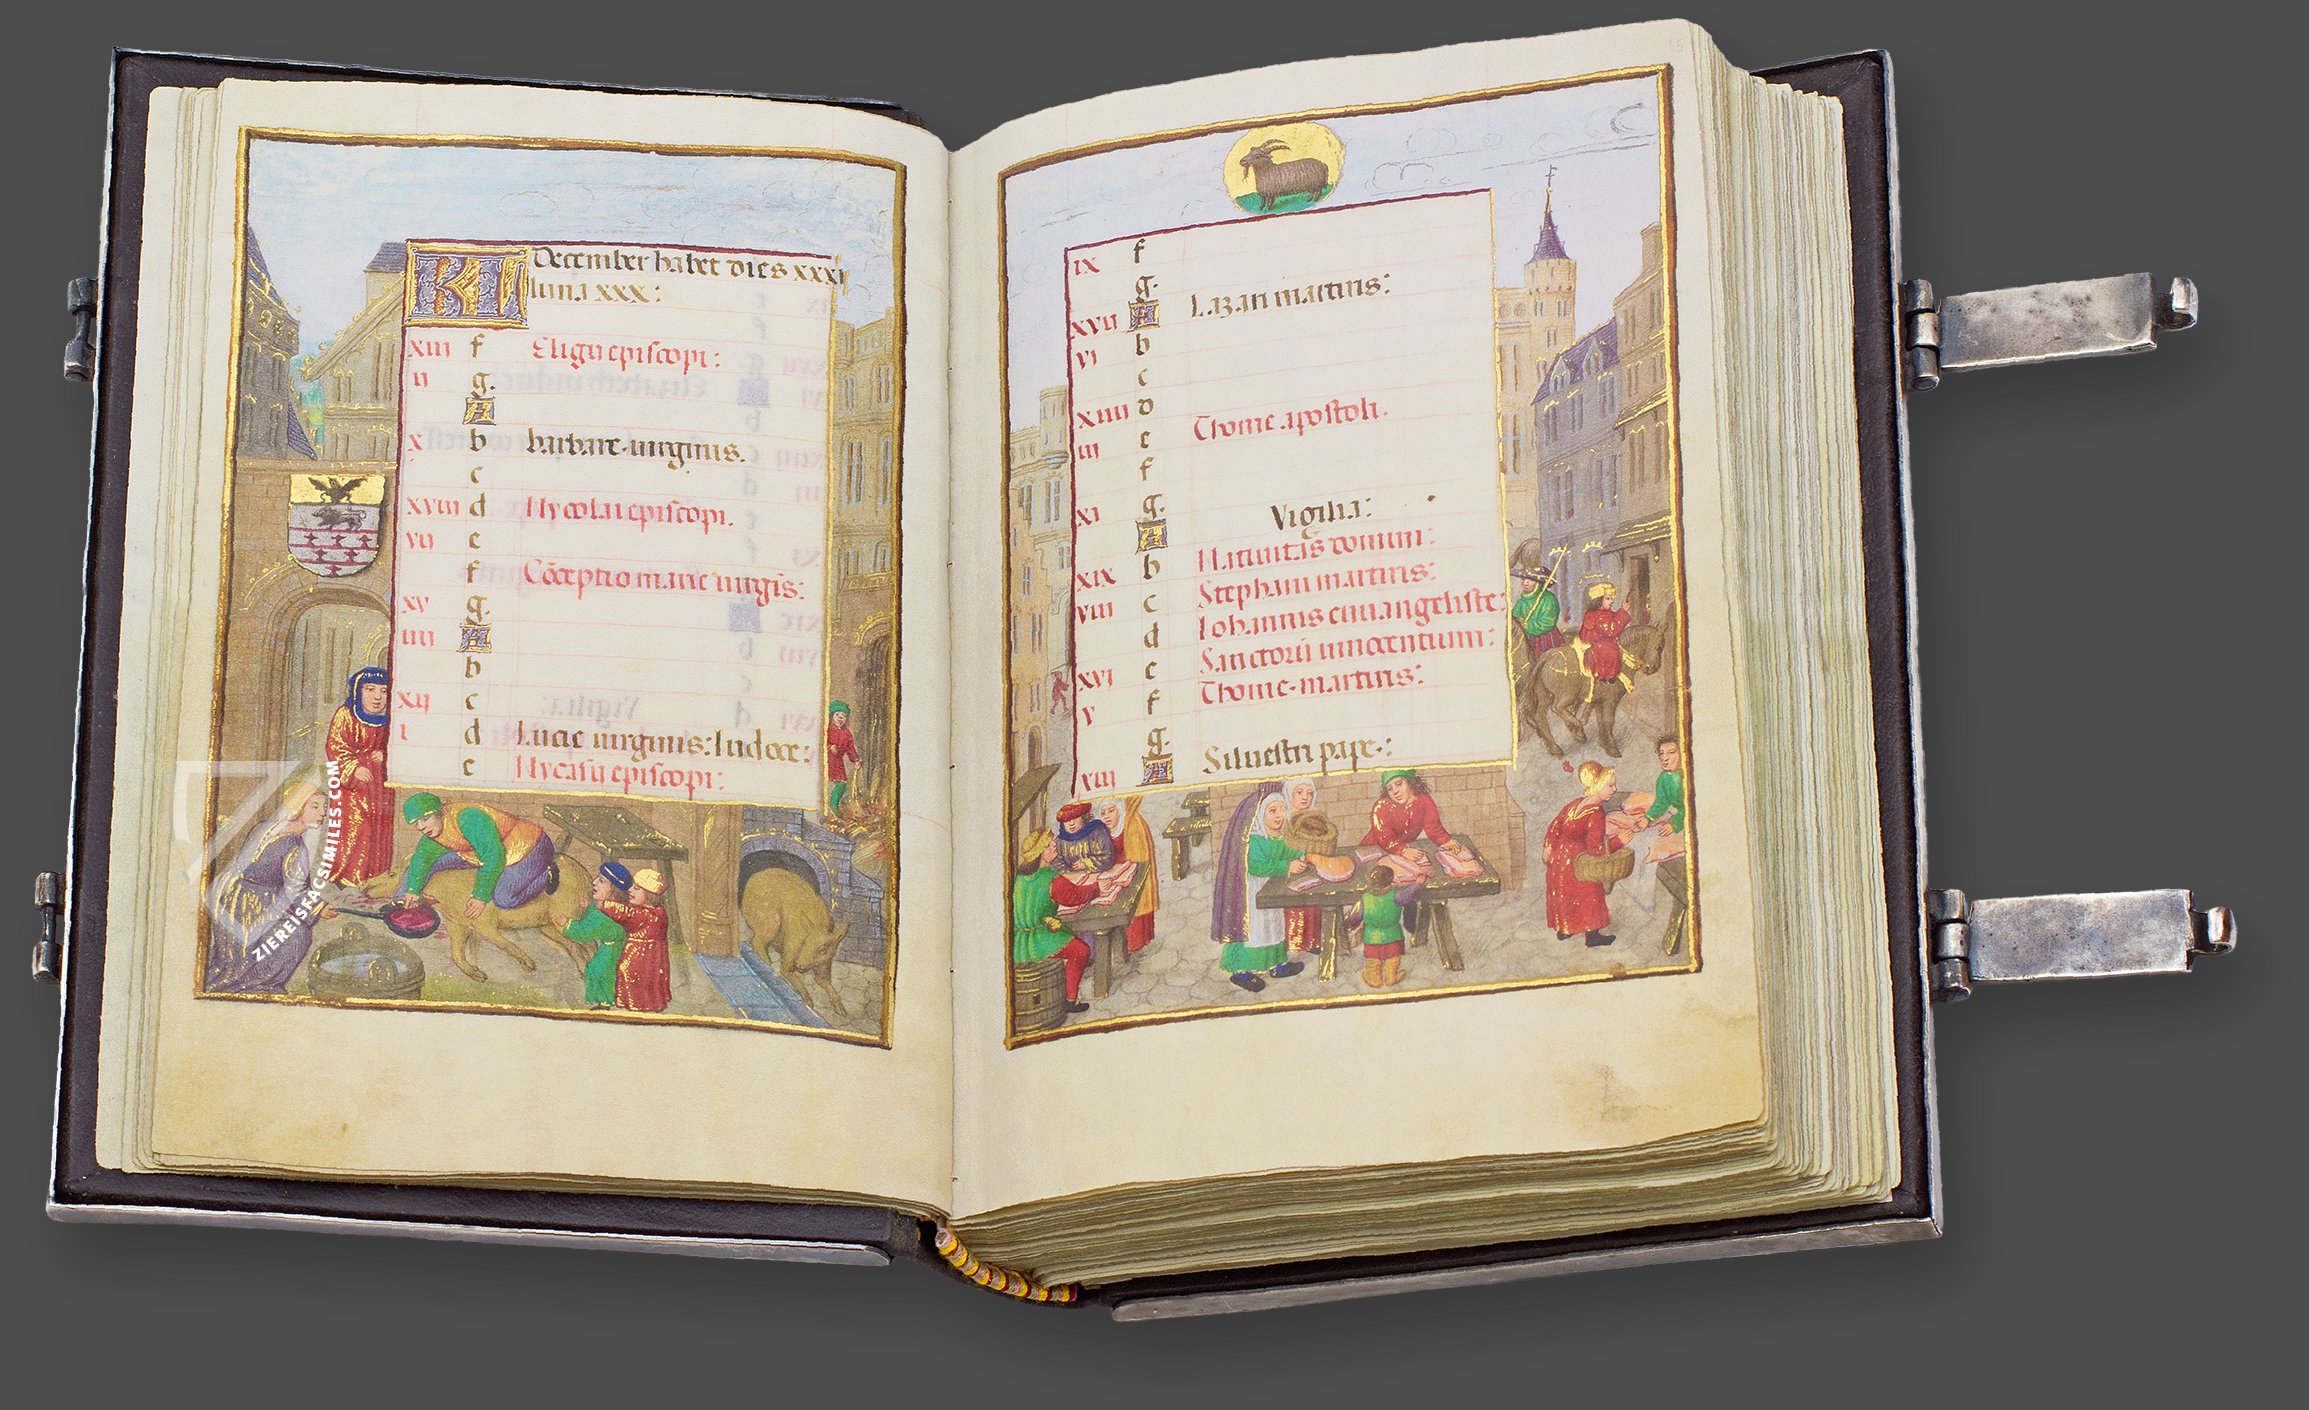 KL December habet dies xxxi
luna xxx:
xiii f Eligii episcopi:
ii g.
A
x b barbare. uirginis.
c
xviii d Nycolai episcopi.
vii e
f Cōceptio marie uirgīs:
xv g.
iiii A
b
xii c
i d Lucie uirginis: Iudoce:
e Nycasii episcopi:
ix f
g.
xvii A Lazari martiris:
vi b
c
xiiii d
iii e Thome apostoli.
f
xi g.
A Vigilia:
xix b Natiuitas domini:
viii c Stephani martiris:
Iohannis euuangeliste:
d Sanctorū innocentium:
xvi e Thome. martiris:
v f
g.
xiii A Siluestri pape.:
ZIEREISFACSIMILES.COM